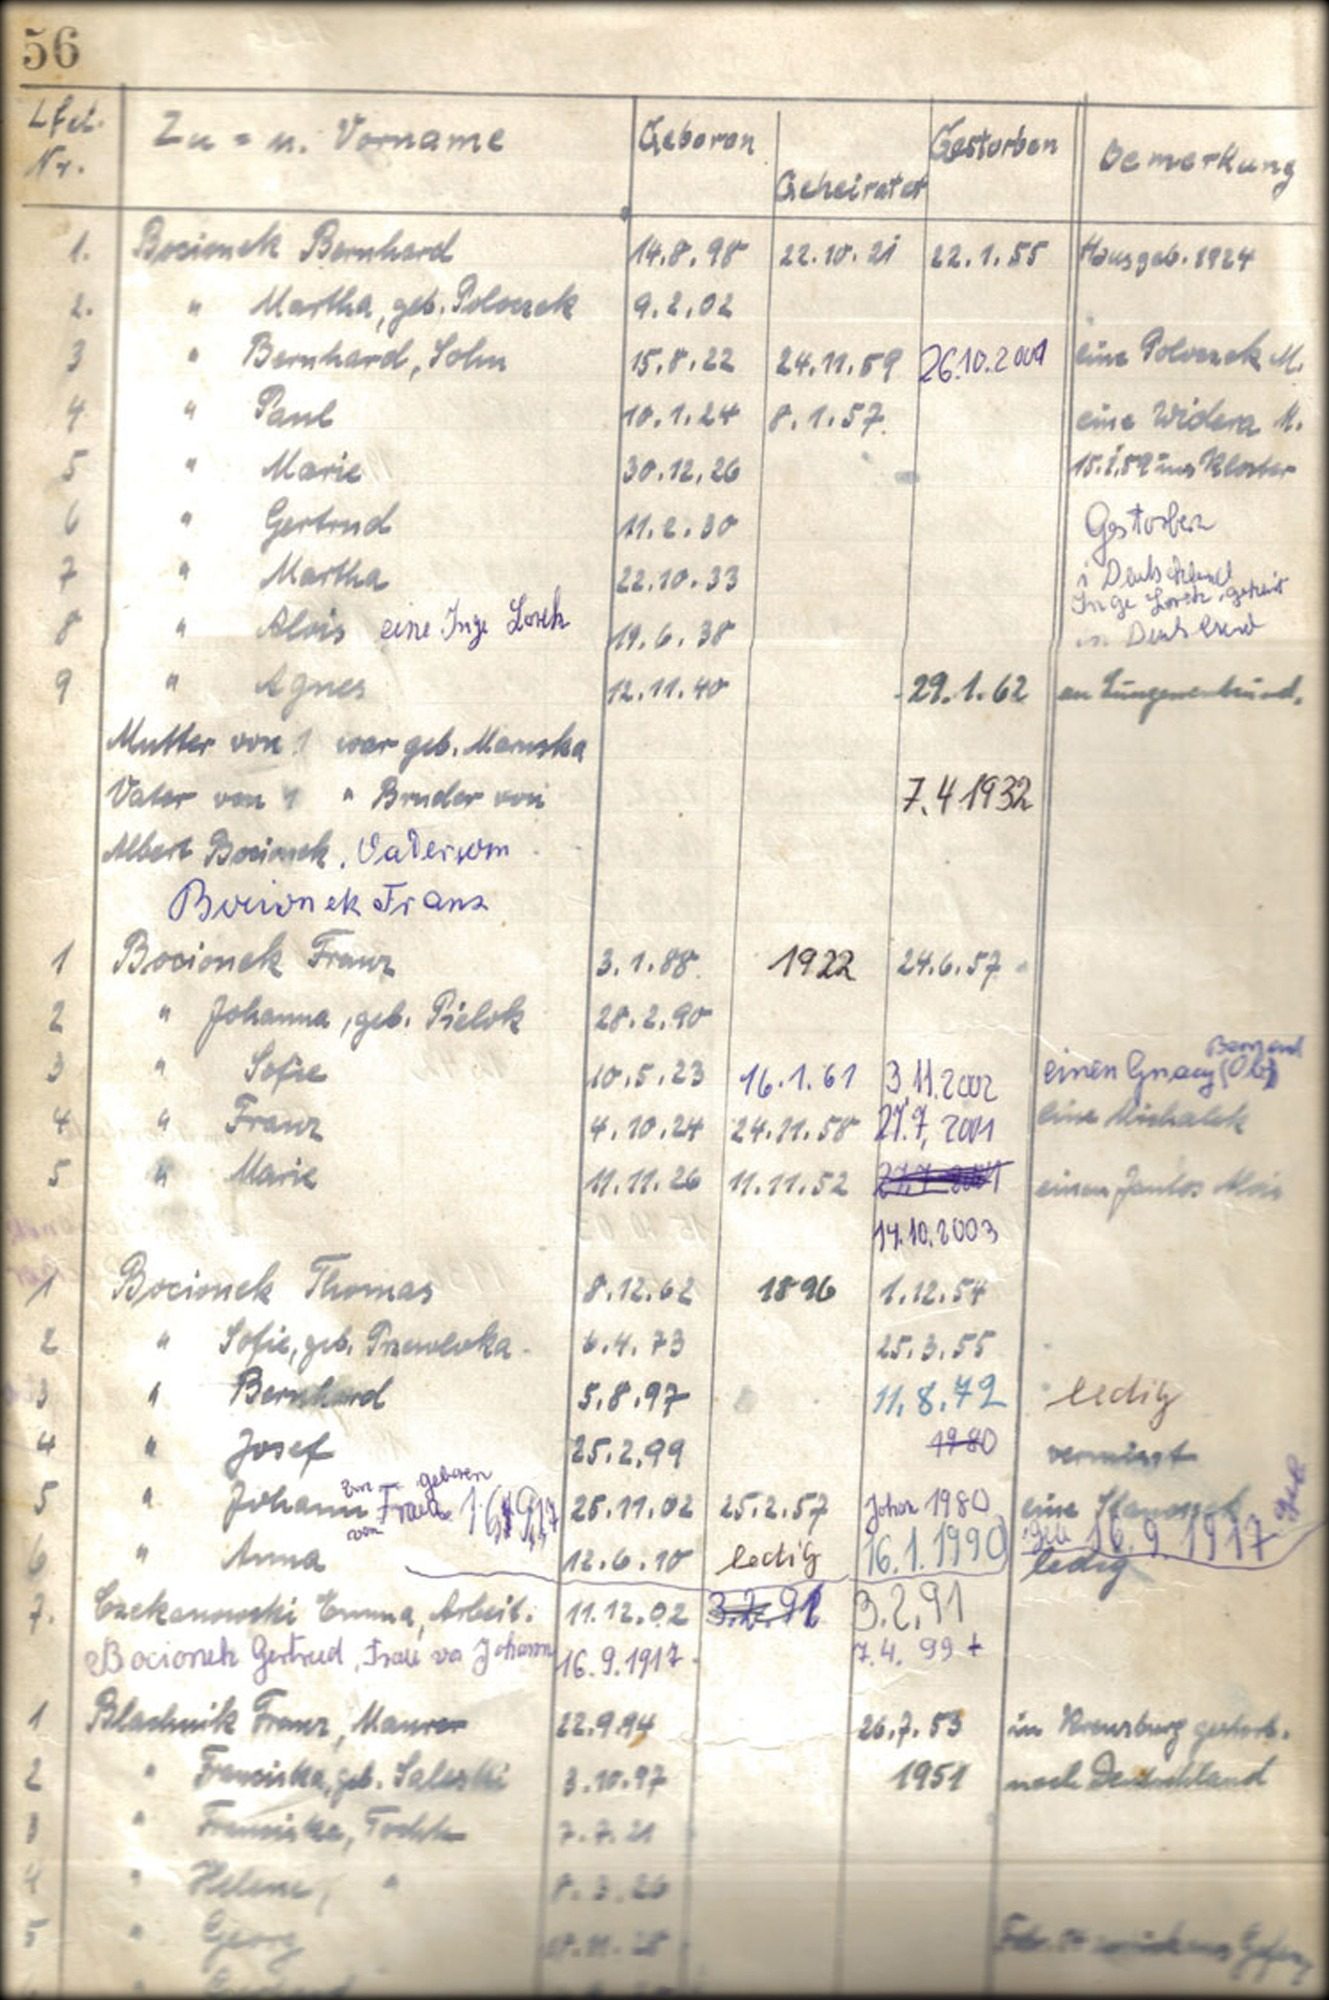 56
Lfd. Nr. Zu = u. Vorname Geboren Geheiratet Gestorben Bemerkung
1. Bocionek Bernhard 14.8.98 22.10.21 22.1.55 Hausgeb. 1924
2. " Martha, geb. Poloczek 9.2.02
3 " Bernhard, Sohn 15.8.22 24.11.59 26.10.2001 eine Poloczek M.
4 " Paul 10.1.24 8.1.57. eine Widera M.
5 " Marie 30.12.26 ins Kloster
6 " Gertrud 11.2.30 Gestorben
7 " Martha 22.10.33 i Deutschland
8 " Alois eine Inge 19.6.38 Inge
9 " Agnes 12.11.40 29.1.62 an
Mutter von 1 war geb. Maruska
Vater von 1 " Bruder von 7.4 1932
Albert Bocionek. Vater von
Bocionek Franz
1 Bocionek Franz 3.1.88. 1922 24.6.57
2 " Johanna, geb. Pielok 28.2.90
3 " Sofie 10.5.23 16.1.61 3.11.2002 einen
4 " Franz 4.10.24 24.11.58 27.7.2001 eine Michalek
5 " Marie 11.11.26 11.11.52 27.7.2001 einen
14.10.2003
1 Bocionek Thomas 8.12.62 1896 1.12.54
2 " Sofie, geb. 6.4.73 25.3.55
3 " Bernhard 5.8.97 11.8.72 ledig
4 " Josef 25.2.99 1980 vermisst
geboren
5 " Johann von Frau 25.11.02 25.2.57 Johan 1980 eine geb
geb 16.9.1917
6 " Anna 12.6.10 ledig 16.1.1990 ledig
7. Czekanowski Emma, Arbeit. 11.12.02 3.2.91 3.2.91
Bocionek Gertrud, Frau von Johann 16.9.1917 7.4.99 +
1 Blachnik Franz, Maurer 22.9.94 26.7.53 in Kreuzburg gestorb.
2 " Franciska, geb. Saleski 3.10.97 1951 nach Deutschland
3 " Franciska, Tocht. 7.7.21
4 " Helene, " 8.3.26
5 " Georg